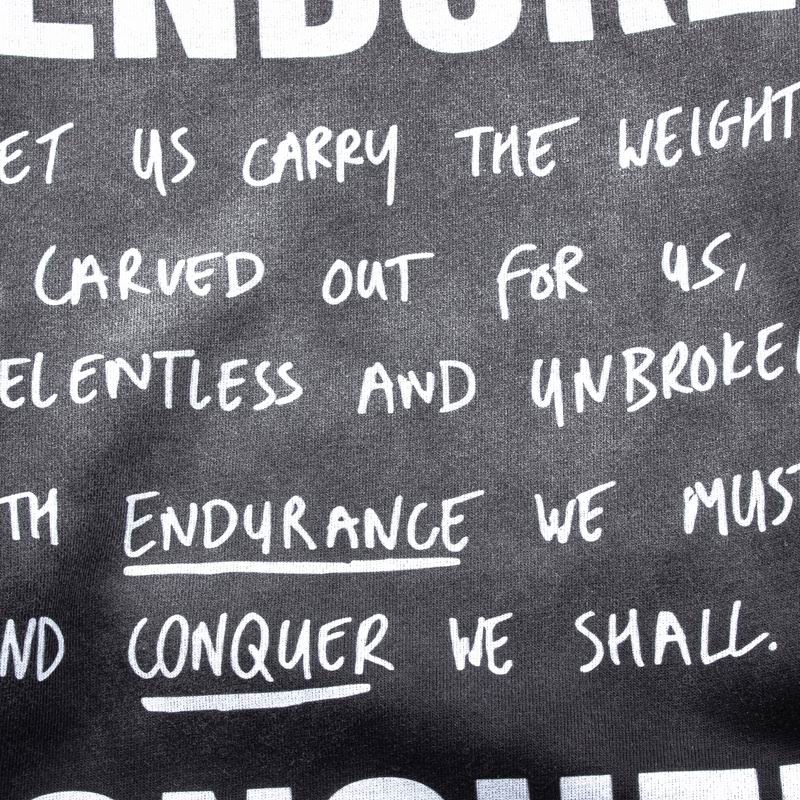 ENDURE
ET US CARRY THE WEIGHT
CARVED OUT FOR US,
ELENTLESS AND UNBROKE
TH ENDURANCE WE MUST
ND CONQUER WE SHALL.